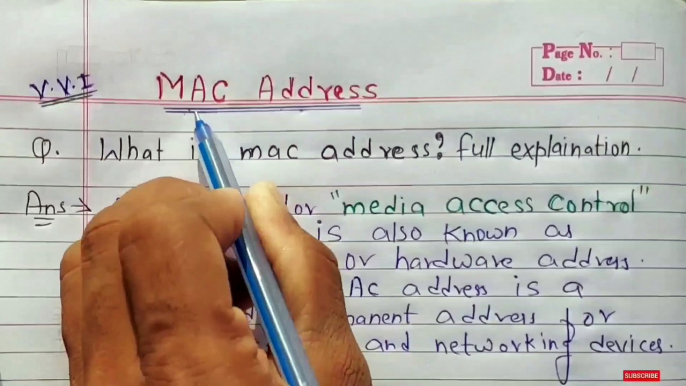 Page No. :
Date : / /
V.V.I MAC Address
Q. What mac address? full explaination.
Ans → "media access control"
is also known as
or hardware address.
address is a
address for
and networking devices.
SUBSCRIBE